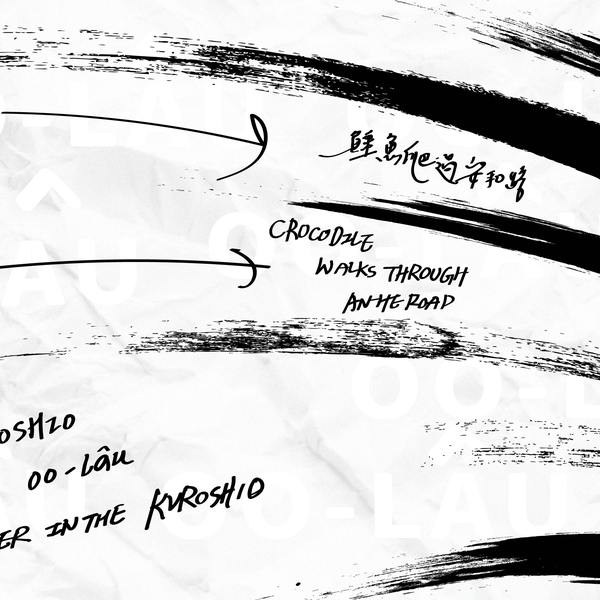 鱷魚爬過安和路
CROCODILE
WALKS THROUGH
ANHE ROAD
OSHIO
OO-Lâu
ER IN THE KUROSHIO
OO-LÂU
OO-L
OO-LÂU